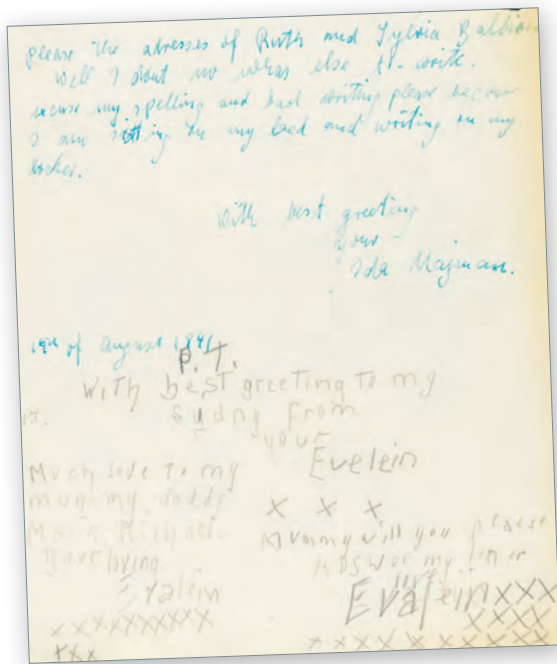 please the adresses of Ruth and Sylvia
Well I dont no whas else to write.
excuse my spelling and bad writing please because
I am sitting in my bed and writing on my
locker.
With best greeting
your -
Ida Majman.
19th of august 1941
P. T.
With best greeting to my
from
your
Evelein
Much love to my
mum my daddy
Michael
your loving
Evalein
x x x
Mummy will you please
answor my leter
love
Evalein xxx
xxxx
xxxxxxxxx
xxx